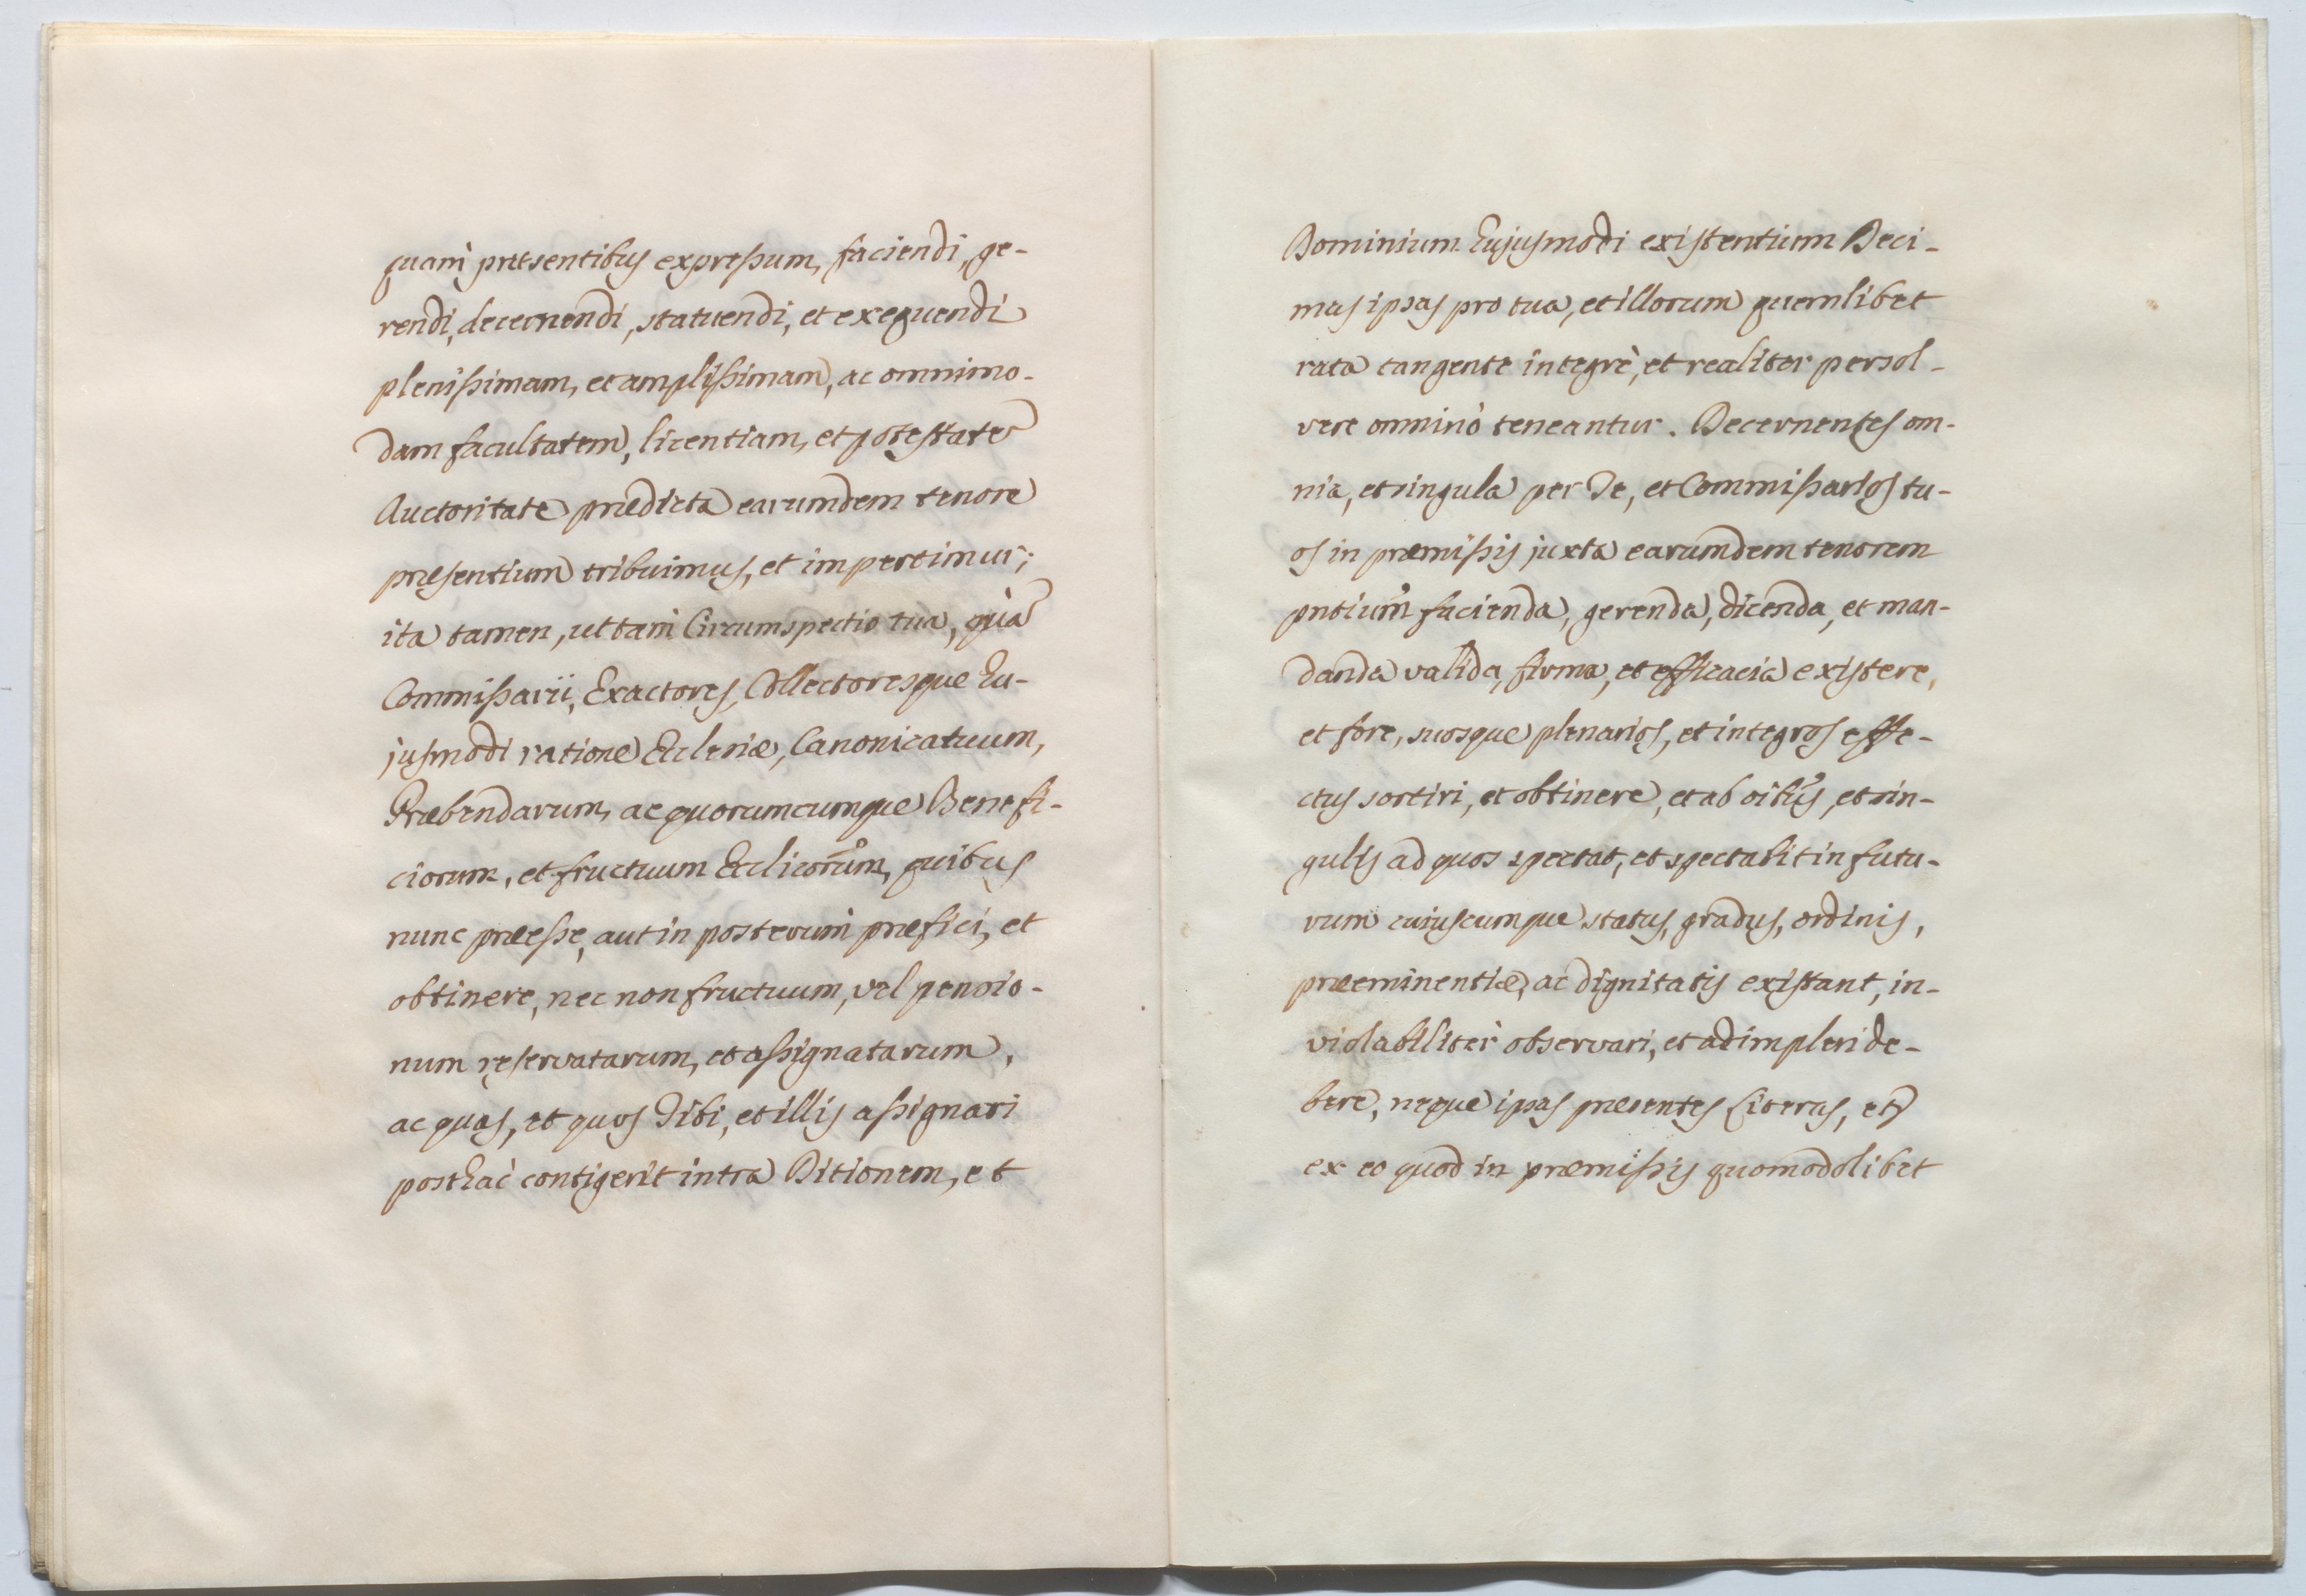 quam præsentibus expressum, faciendi, ge-
rendi, decernendi, statuendi, et exequendi
plenissimam, et amplissimam, ac omnimo-
dam facultatem, licentiam, et potestatē
Auctoritate prædicta earumdem tenore
præsentium tribuimus, et impertimur;
ita tamen, ut tam Circumspectio tua, quā
Commissarii, Exactores, Collectoresque hu-
jusmodi ratione Ecclesiæ, Canonicatuum,
Præbendarum, ac quorumcumque Benefi-
ciorum, et fructuum Ecclicorum̃, quibus
nunc præesse, aut in posterum præfici, et
obtinere, nec non fructuum, vel pensio-
num reservatarum, et assignatarum,
ac quas, et quos Tibi, et illis assignari
posthac contigerit intra Ditionem, et
Dominium hujusmodi existentium Deci-
mas ipsas pro tua, et illorum quemlibet
rata tangente integrè, et realiter persol-
vere omninò teneantur. Decernentes om-
nia, et singula per Te, et Commissarios tu-
os in præmissis juxta earumdem tenorem
pntium̃ facienda, gerenda, dicenda, et man-
danda valida, firma, et efficacia existere,
et fore, suosque plenarios, et integros effe-
ctus sortiri, et obtinere, et ab oibus̃, et sin-
gulis ad quos spectat, et spectabit in futu-
rum cujuscumque status, gradus, ordinis,
præeminentiæ, ac dignitatis existant, in-
violabiliter observari, et adimpleri de-
bere, neque ipsas præsentes Literas, et
ex eo quod in præmissis quomodolibet